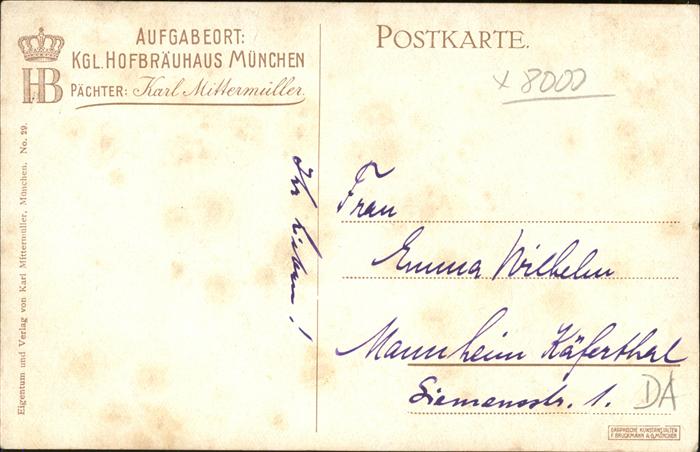 AUFGABEORT:
KGL. HOFBRÄUHAUS MÜNCHEN
HB
PÄCHTER: Karl Mittermüller.
POSTKARTE.
x 8000
Eigentum und Verlag von Karl Mittermüller, München, No. 29.
Ihr Lieben!
Frau
Emma Wilhelm
Mannheim Käferthal
Siemensstr. 1.
DA
GRAPHISCHE KUNSTANSTALTEN
F. BRUCKMANN A.G. MÜNCHEN